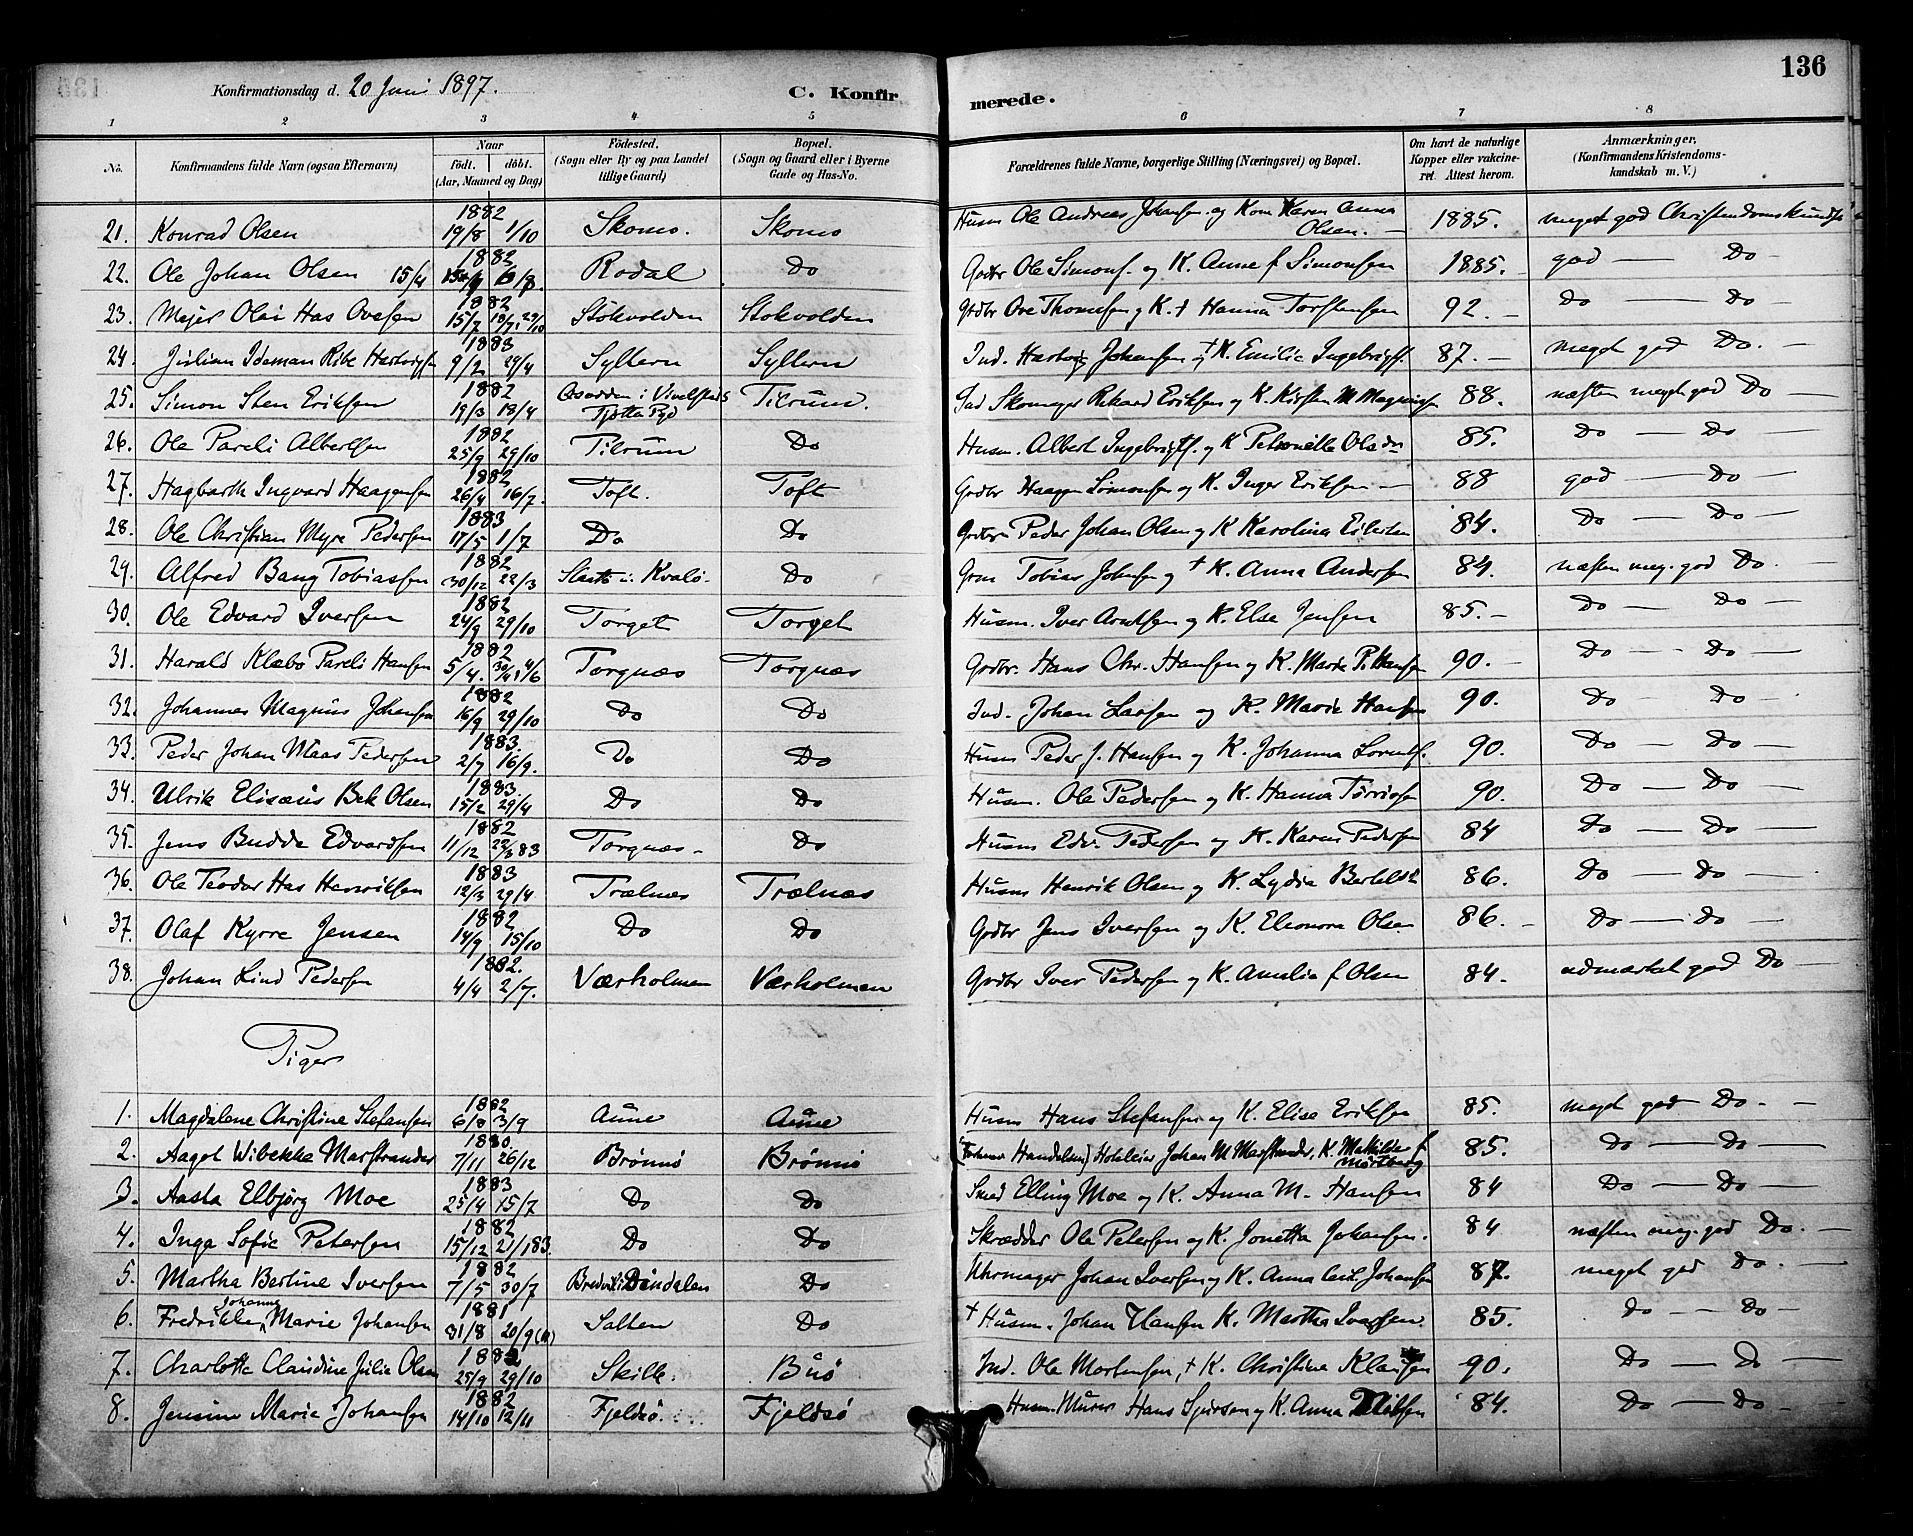 Konfirmationsdag d. 20 Juni 1897.
C. Konfirmerede.
136
1 2 3 4 5 6 7 8
No. Konfirmandens fulde Navn (ogsaa Efternavn) Naar födt. döbt. (Aar, Maaned og Dag) Födested. (Sogn eller By og paa Landet tillige Gaard) Bopæl. (Sogn og Gaard eller i Byerne Gade og Hus-No. Forældrenes fulde Navne, borgerlige Stilling (Næringsvei) og Bopæl. Om havt de naturlige Kopper eller vakcineret. Attest herom. Anmærkninger. (Konfirmandens Kristendomskundskab m. V.)
21. Konrad Olsen 1882 19/8 1/10 Skomo. Skomo Husm Ole Andreas Johansen og Kone Karen Anna Olsen. 1885. meget god Christendomskundsk
22. Ole Johan Olsen 15/4 1882 Rodal Do Gdbr Ole Simons. og K. Anne f Simonsen 1885. god — Do
23. Mejer Olai Has Ovesen 1882 15/7 Stökvolden Stokvolden Grdbr Ove Thomesen og K. † Hanna Torstensen 92. Do — Do
24. Julian Ideman Ribe Hartvigsen 1883 9/2 29/4 Syltern Syltern Ind. Hartvig Johansen og † K. Emilie Ingebrigts. 87. meget god Do.
25. Simon Sten Eriksen 1882 19/3 18/4 i Vivelstad Tjötta Pgd Tilrum. Ind Skomager Rikard Eriksen og K. Kirsten M Magnusen 88. næsten meget god Do
26. Ole Pareli Albertsen 1882 25/9 29/10 Tilrum Do Husm. Albert Ingebrigts. og K Petronelle Olsdr 85. Do — Do
27. Hagbarth Ingvard Haagensen 1882 26/4 16/7. Toft. Toft Grdbr Haagen Simonsen og K. Inger Eriksen 88 god — Do
28. Ole Christian Myre Pedersen 1883 17/5 1/7 Do Do Grdbr Peder Johan Olsen og K Karolina Eilertsen 84. Do — Do
29. Alfred Bang Tobiassen 1882 30/12 22/3 Kvalö. Do Tobias Johnsen og † K. Anna Andersen 84. næsten meg. god Do.
30. Ole Edvard Iversen 1882 24/9 29/10 Torget Torget Husm. Iver Arntsen og K. Else Jensen 85. Do — Do
31. Harald Klæbo Pareli Hansen 1882 5/4. 30/4 4/6 Torgnæs Torgnæs Grdbr. Hans Chr. Hansen og K. Marie P. Hansen 90. Do — Do
32. Johannes Magnus Johansen 1882 16/9 29/10 Do Do Ind. Johan Larsen og K. Marie Hansen 90. Do Do
33. Peder Johan Maas Pedersen 1883. 2/7 16/9. Do Do Husm Peder J. Hansen og K. Johanna Lorents. 90. Do — Do
34. Ulrik Elisæus Bek Olsen 1883 15/2 29/4 Do Do Husm. Ole Pedersen og K. Hanna Törrisen 90. Do — Do
35. Jens Budde Edvardsen 1882 11/12 22/3 83 Torgnæs Do Husm Edv. Pedersen og K. Karen Pedersen 84 Do — Do
36. Ole Teodor Has Henriksen 1883 12/3 29/4 Trælnes Trælnæs Husm Henrik Olsen og K. Lydia Bertels 86. Do — Do
37. Olaf Kyrre Jensen 1882 14/9 15/10 Do Do Grdbr Jens Iversen og K. Eleonora Olsen 86. Do — Do
38. Johan Lind Pedersen 1882. 4/4 2/7. Værholmen Værholmen Grdbr Iver Pedersen og K. Amalia f Olsen 84. udmærket god Do
Piger
1. Magdalene Christine Stefansen 1882 6/8 3/9 Aune Aune Husm Hans Stefansen og K. Elise Eriksen 85. meget god Do
2. Aagot Wibekke Marstrander 1880 7/11 26/12 Brönnö Brönnö (Forhenv Handelsm) Hoteleier Johan M Marstrander, K. Mathilde f 85. Do — Do
3. Aasta Elbjörg Moe 1883 25/4 15/7 Do Do Smed Elling Moe og K. Anna M. Hansen 84 Do — Do
4. Inga Sofie Petersen 1882 15/12 21/1 83 Do Do Skrædder Ole Petersen og K. Jonetta Johansen. 84 næsten meg. god Do.
5. Martha Berline Iversen 1882 7/5 30/7 Bindalen Do Uhrmager Johan Iversen og K. Anna Johansen 87. meget god Do.
6. Fredrikke Johanne Marie Johansen 1881 31/8 20/9 Salten Do † Husm. Johan Hansen K. Martha Iversen. 85. Do — Do
7. Charlotte Claudine Julie Olsen 1882 25/9 29/10 Skille. Buö Ind. Ole Mortensen, † K. Christine Klausen 90. Do — Do
8. Jensine Marie Johansen 1882 14/10 12/11 Fjeldsö. Fjeldsö Husm. Murer Hans og K. Anna Nilsen 84. Do — Do